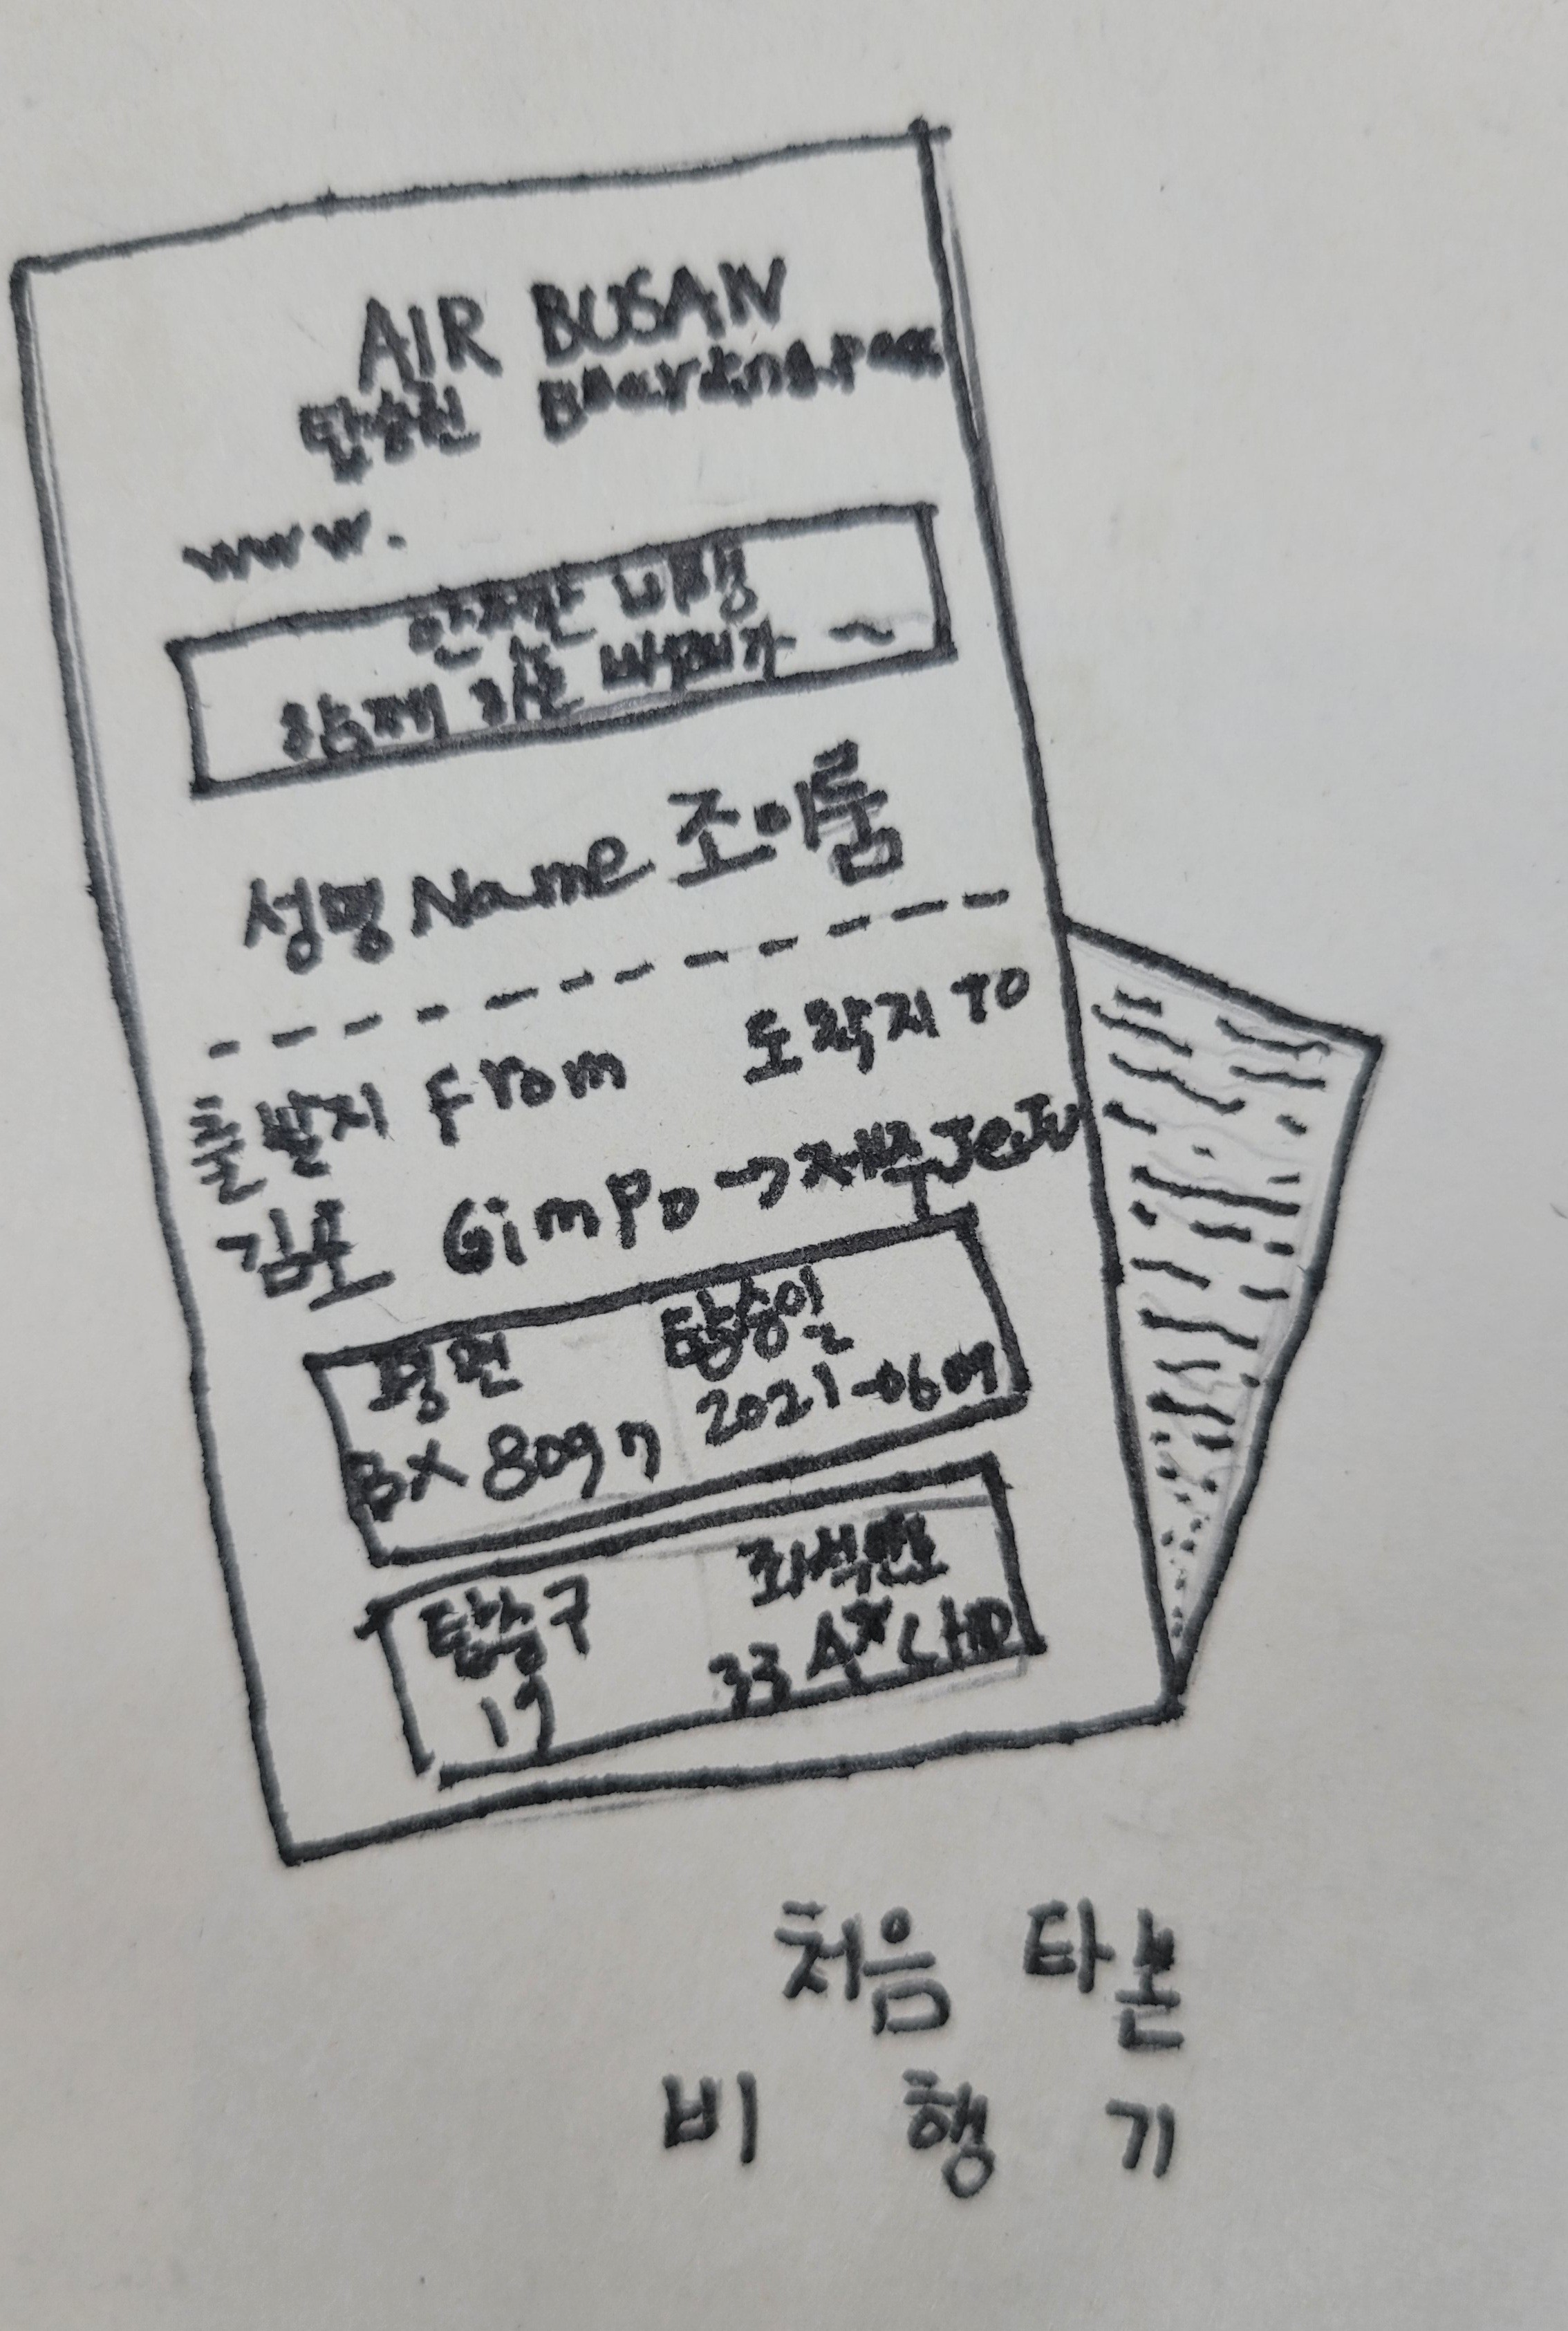 AIR BUSAN
탑승권 Boarding pass
www.
안전한 비행
함께 하는 버릇가 ~
성명 Name 조이룸
출발지 From 도착지 TO
김포 Gimpo → 제주 JeJu
편 탑승일
BX 8097 2021-0609
탑승구 좌석번호
19 33 A
처음 타 본
비 행 기